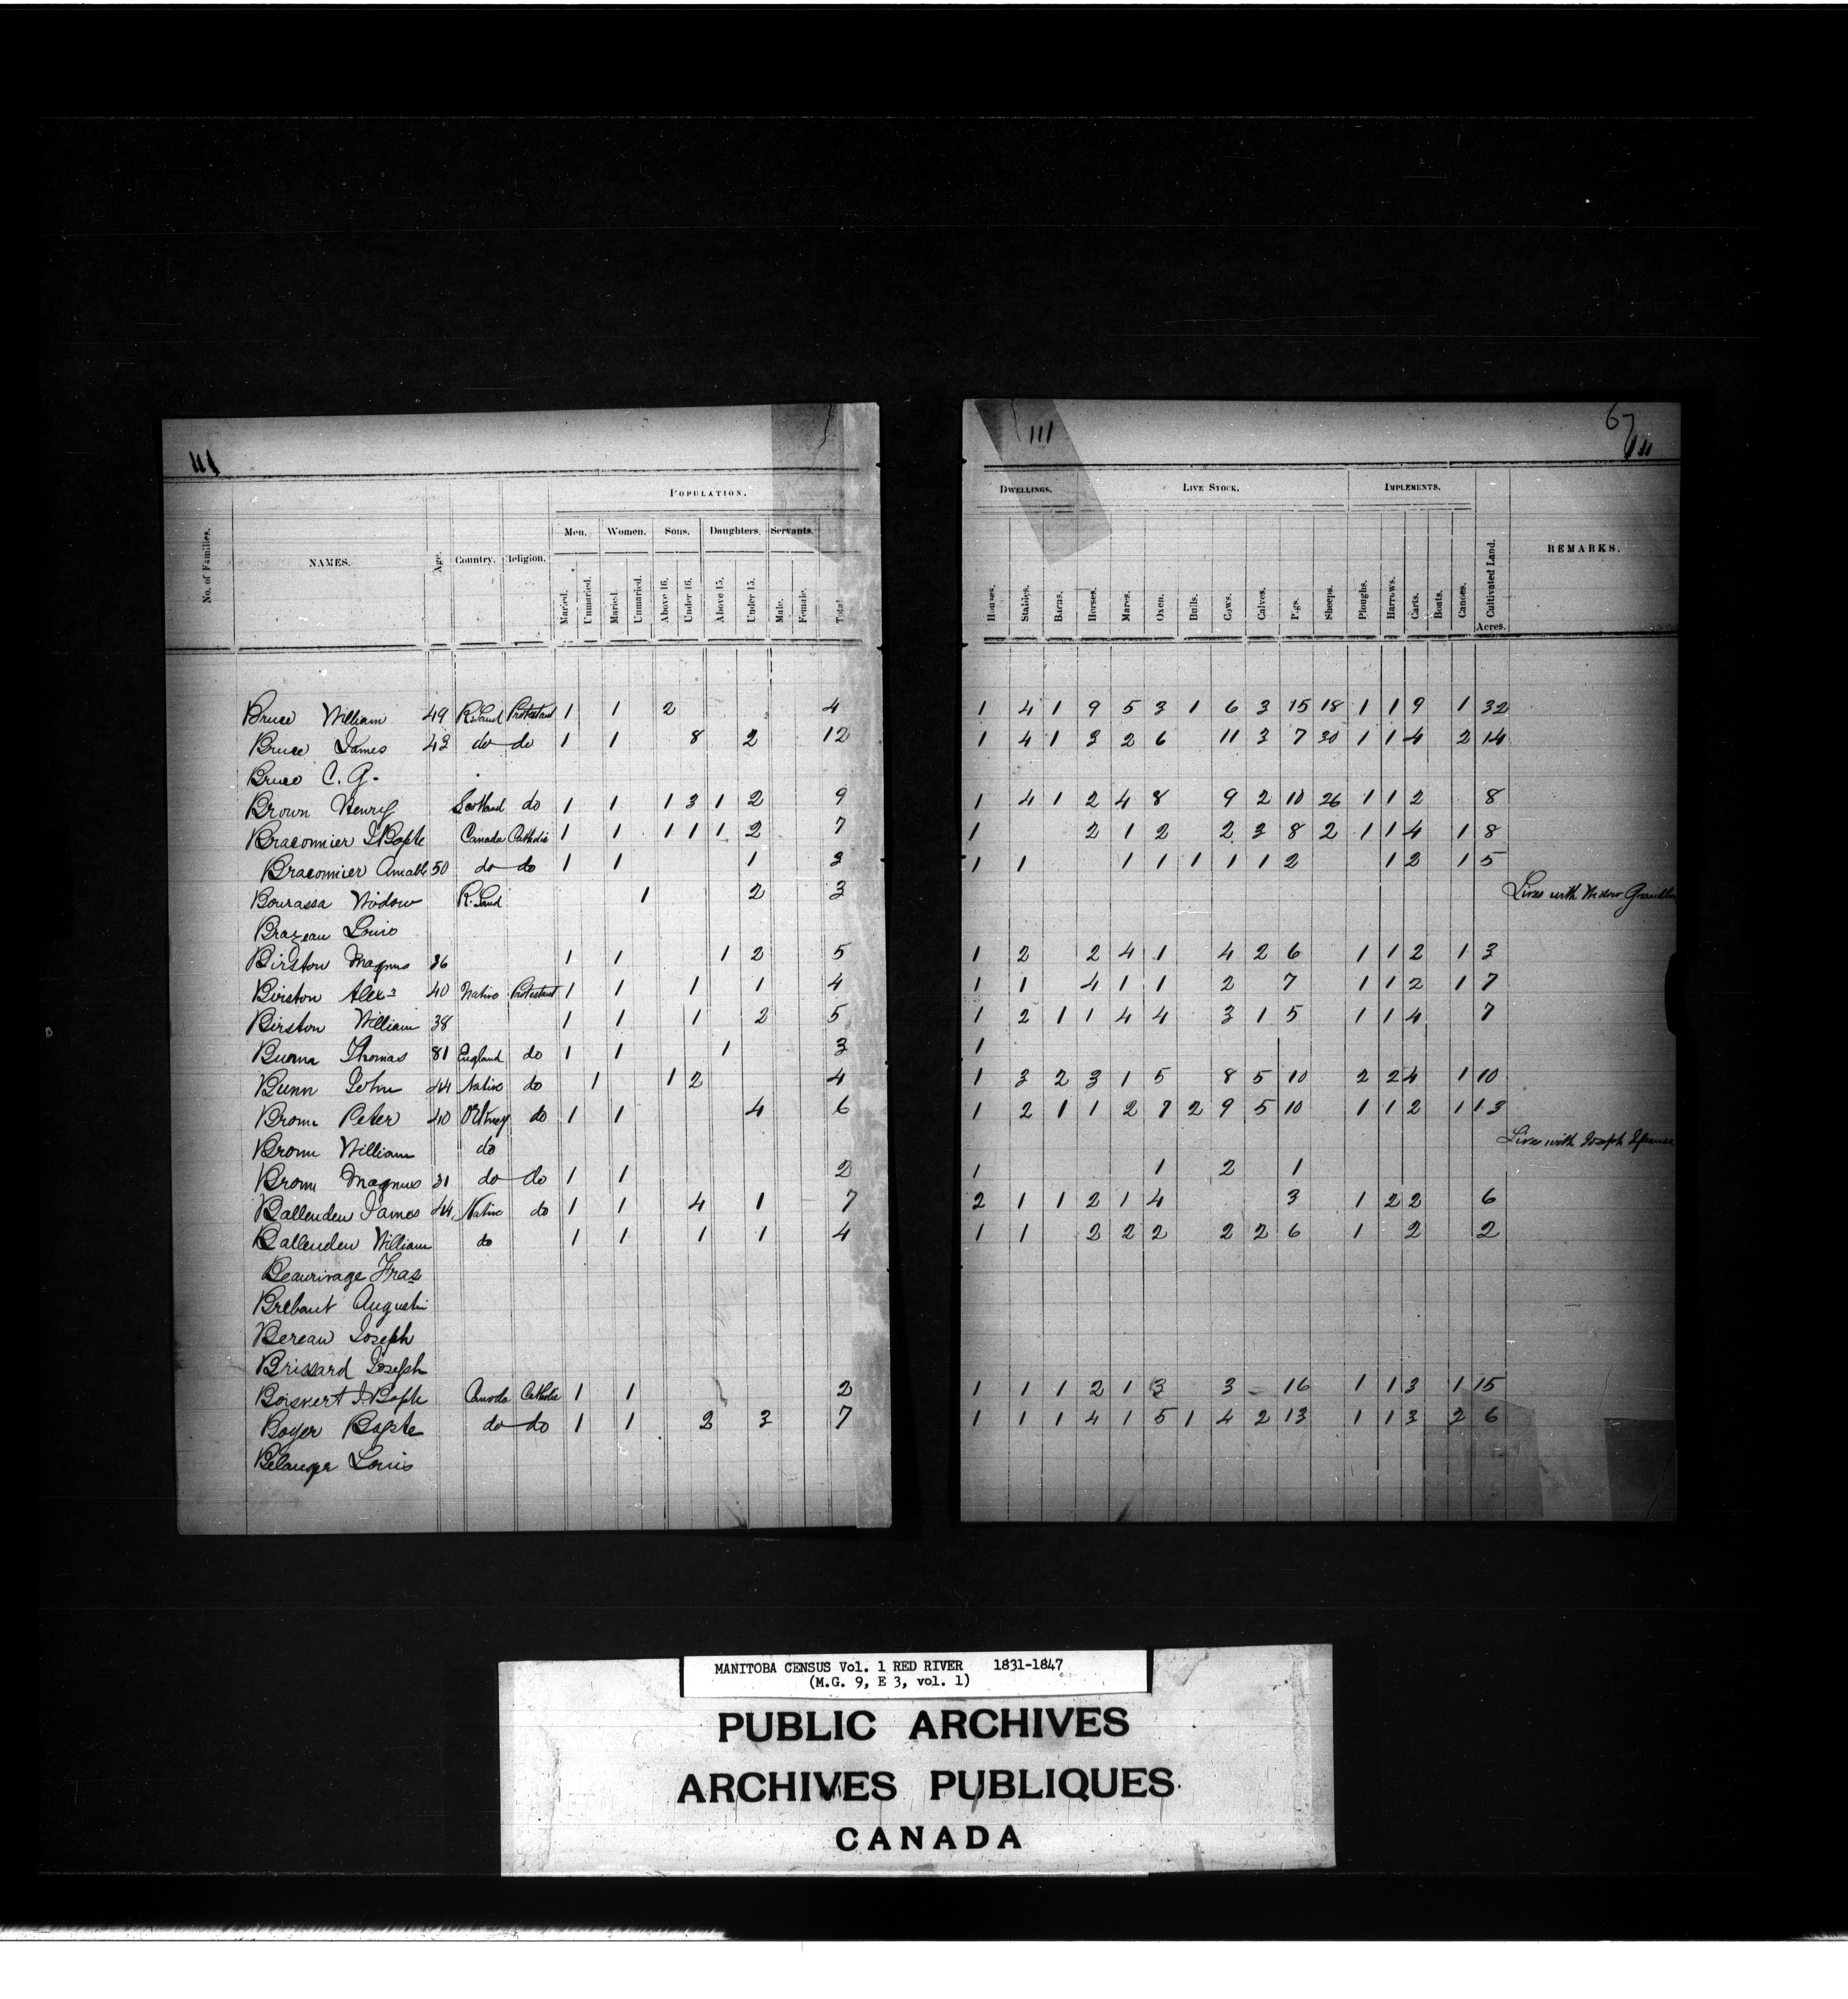 111
111
67
111
POPULATION.
Men. Women. Sons. Daughters. Servants.
No. of Families. NAMES. Age. Country. Religion. Maried. Unmaried. Maried. Unmaried. Above 16. Under 16. Above 15. Under 15. Male. Female. Total
DWELLINGS. LIVE STOCK. IMPLEMENTS.
Houses. Stables. Barns. Horses. Mares. Oxen. Bulls. Cows. Calves. Pigs. Sheeps. Ploughs. Harrows. Carts. Boats. Canoes. Cultivated Land. Acres. REMARKS.
Bruce William 49 R. Land Protestant 1 1 2 4 1 4 1 9 5 3 1 6 3 15 18 1 1 9 1 32
Bruce James 43 do do 1 1 8 2 12 1 4 1 3 2 6 11 3 7 30 1 1 4 2 14
Bruce C. G.
Brown Henry Scotland do 1 1 1 3 1 2 9 1 4 1 2 4 8 9 2 10 26 1 1 2 8
Braconnier J Bapte Canada Catholic 1 1 1 1 1 2 7 1 2 1 2 2 3 8 2 1 1 4 1 8
Braconnier Amable 50 do do 1 1 1 3 1 1 1 1 1 1 1 2 1 2 1 5
Bourassa Widow R. Land 1 2 3 Lives with Widow
Brazeau Louis
Birston Magnus 36 1 1 1 2 5 1 2 2 4 1 4 2 6 1 1 2 1 3
Birston Alex 40 Native Protestant 1 1 1 1 4 1 1 4 1 1 2 7 1 1 2 1 7
Birston William 38 1 1 1 2 5 1 2 1 1 4 4 3 1 5 1 1 4 7
Thomas 81 England do 1 1 1 3 1
Bunn John 44 Native do 1 1 2 4 1 3 2 3 1 5 8 5 10 2 2 4 1 10
Brown Peter 40 Orkney do 1 1 4 6 1 2 1 1 2 7 2 9 5 10 1 1 2 1 13
Brown William do Lives with Joseph Spence
Brown Magnus 31 do do 1 1 2 1 1 2 1
Ballenden James 44 Native do 1 1 4 1 7 2 1 1 2 1 4 3 1 2 2 6
Ballenden William do 1 1 1 1 4 1 1 2 2 2 2 2 6 1 2 2
Beaurivage Fras
Brebant Augustin
Bereau Joseph
Brissard Joseph
Boisvert J. Bapte Canada Catholic 1 1 2 1 1 1 2 1 3 3 16 1 1 3 1 15
Boyer Bapte do do 1 1 2 3 7 1 1 1 4 1 5 1 4 2 13 1 1 3 2 6
Belanger Louis
MANITOBA CENSUS Vol. 1 RED RIVER 1831-1847
(M.G. 9, E 3, vol. 1)
PUBLIC ARCHIVES
ARCHIVES PUBLIQUES
CANADA